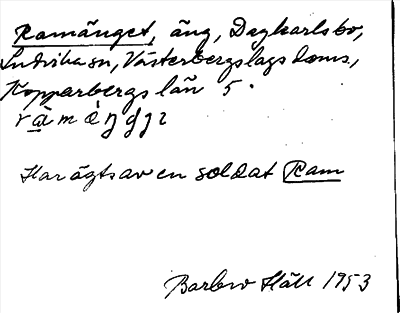 Ramänget, äng, Dagkarlsbo,
Ludvika sn, Västerbergslags doms,
Kopparbergs län 5.
Har ägts av en soldat Ram
Barbro Häll 1953